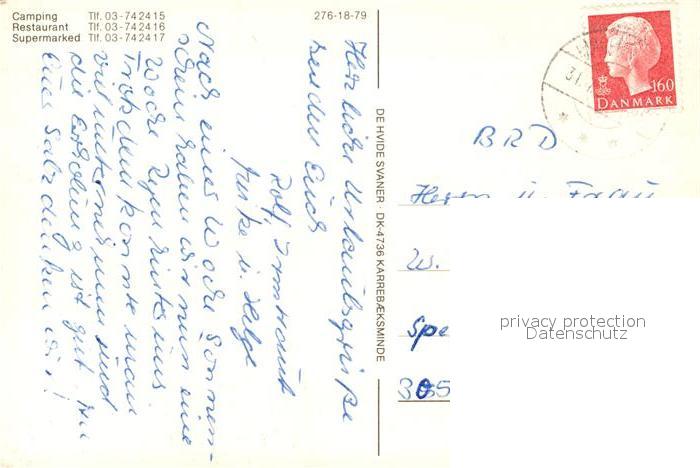 Camping Tlf. 03-742415
Restaurant Tlf. 03-742416
Supermarked Tlf. 03-742417
276-18-79
Herzliche Urlaubsgrüße
senden Euch
Rolf, Irmtraut
u. Helge
Nach einer Woche Sonnen-
schein haben wir nun eine
Woche Regen hinter uns
Trotzdem konnte man
viel unternehmen und
die Erholung ist gut. An
Eures Salz denken wir!
DE HVIDE SVANER · DK-4736 KARREBÆKSMINDE
160
DANMARK
BRD
Herrn u. Frau
W.
Spe
305
privacy protection
Datenschutz